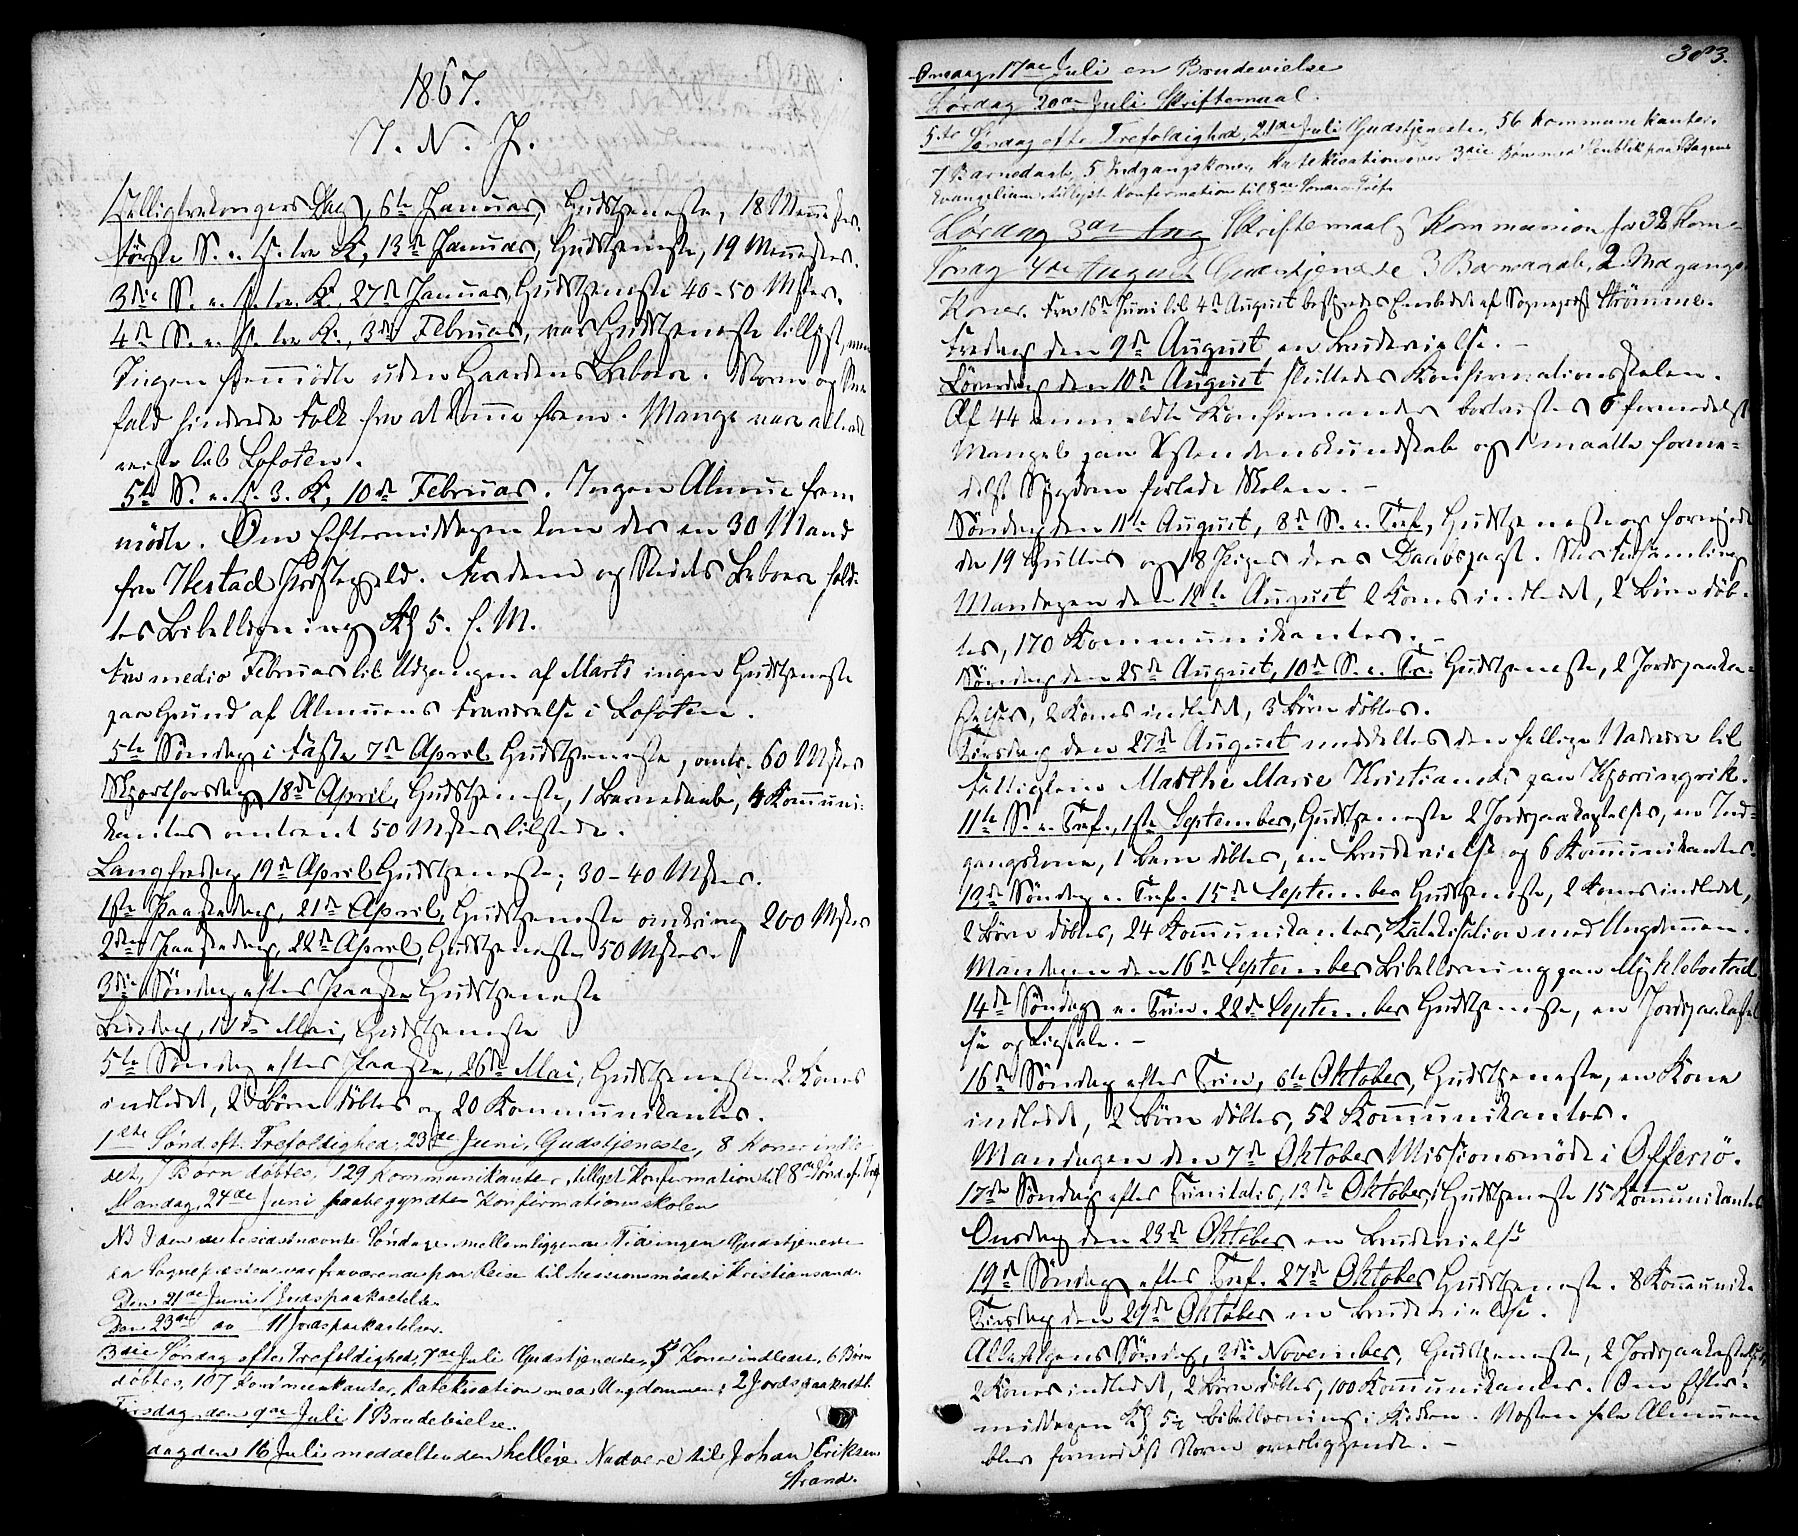 1867.
I. N. J.
Helligtrekongers Dag, 6te Januar, Gudstjeneste, 18 Mennesker.
Første S. e. H. tre K, 13de Januar, Gudstjeneste, 19 Mennesker.
3die S. e. H. tre K. 27de Januar, Gudstjeneste 40-50 Msker.
4de S. e. H. tre K., 3die Februar, var Gudstjeneste tillyst, men
Ingen fremmødte uden Gaardens Beboere. Storm og Sne
fald hindrede Folk fra at komme frem. Mange vare allerede
reiste til Lofoten.
5te S. e. H. 3. K, 10de Februar. Ingen Almue frem
mødte. Om Eftermiddagen kom der en 30 Mand
fra Ibestad Præstegjeld. For dem og Stedets Beboere hold
tes Bibellæsning Kl 5. E. M.
Fra medio Februar til Udgangen af Marts ingen Gudstjeneste
paa Grund af Almuens Fraværelse i Lofoten.
5te Søndag i Faste 7de April Gudstjeneste, omtr. 60 Msker
Skjærthorsdag 18de April, Gudstjeneste, 1 Barnedaab, 4 Kommuni-
kanter omtrent 50 Msker tilstede.
Langfredag 19de April Gudstjeneste; 30-40 Msker.
1ste Paaskedag, 21de April, Gudstjeneste omkring 200 Msker
2den Paaskedag, 22de April, Gudstjeneste 50 Msker.
3die Søndag efter Paaske Gudstjeneste
Bededag, Mai, Gudstjeneste
5te Søndag efter Paaske, 26de Mai, Gudstjeneste 2 Koner
indledet, 2 Børn døbtes og 20 Kommunikanter.
1ste Sønd. eft. Trefoldighed, 23de Juni, Gudstjeneste, 8 Koner indle-
det, Børn døbtes, 129 Kommunikanter, tillyst Konfirmation til 8de Sønd. ef. Tref
Mandag, 24de Juni paabegyndtes Konfirmationsskolen
NB I den mellemliggende Tid ingen Gudstjeneste
da Sognepræsten var fraværende paa Reise til Missionsmødet i Kristiansand.
Den 21de Juni 1 Jordspaakastelse
Den 23de do 11 Jordspaakastelser.
3die Søndag efter Trefoldighed, 7de Juli Gudstjeneste, 5 Koner indledet, 6 Børn
døbtes, 107 Kommunikanter, Katekisation med Ungdommen; 2 Jordspaakastel.
Tirsdag den 9de Juli 1 Brudevielse.
dag den 16 Juli meddeltes den hellige Nadvere til Johan Eriksen
Strand.
303.
Onsdag 17de Juli en Brudevielse
Lørdag 20de Juli Skriftemaal.
5te Søndag efter Trefoldighed, 21de Juli Gudstjeneste, 56 Kommunikanter.
7 Barnedaab, 5 Indgangskoner, Katekisation over 3die Bøn med Henblik paa Dagens
Evangelium, tillyst Konfirmation til 8de Søndag e. Tref.
Lørdag 3de Aug Skriftemaal og Kommunion for 32 Kom-
Søndag 4de August Gudstjeneste 3 Barnedaab, 2 Indgangs-
Koner. Fra 16de Juni til 4de August bestyredes Embedet af Sogneprest Strømme.
Fredag den 9de August, en Brudevielse. -
Lørdag den 10de August, sluttedes Konfirmationsskolen.
Af 44 anmeldte Konfirmander bortvistes 6 formedelst
Mangel paa Kristendomskundskab og 1 maatte forme-
delst Sygdom forlade Skolen. -
Søndag den 11te August, 8de S. e. Tref, Gudstjeneste og fornyede
da 19 Gutter og 18 Piger deres Daabspagt. Stor Forsamling
Mandagen den 12te August 2 Koner indledet, 2 Børn døb-
tes, 170 Kommunikanter. -
Søndag den 25de August, 10de S. e. Tr. Gudstjeneste, 2 Jordspaaka-
stelser, 2 Koner indledet, 3 Børn døbtes.
Tirsdag den 27de August meddeltes den hellige Nadvere til
Fattiglem Marthe Marie Kristiansd. paa Kjørringvik.
11te S. e. Tref., 1ste September, Gudstjeneste 2 Jordspaakastelser, en Ind-
gangskone, 1 Barn døbtes, en Brudevielse og 6 Kommunikanter.
13de Søndag e. Tref. 15de September Gudstjeneste, 2 Koner indledet,
2 Børn døbtes, 24 Kommunikanter, Katekisation med Ungdommen.
Mandagen den 16de September Bibellæsning paa Myklebostad
14de Søndag e. Trin. 22de September Gudstjeneste, en Jordspaakastel-
se og Ligtale. -
16de Søndag efter Trin, 6te Oktober, Gudstjeneste, en Kone
indledet, 2 Børn døbtes, 52 Kommunikanter.
Mandagen den 7de Oktober Missionsmøde i Offersø.
17de Søndag efter Trinitatis, 13de Oktober, Gudstjeneste 15 Kommunikanter
Onsdag den 23de Oktober en Brudevielse
19de Søndag efter Tref. 27de Oktober Gudstjeneste. 8 Kommunik.
Tirsdag den 29de Oktober en Brudevielse.
Allehelgens Søndag, 3die November, Gudstjeneste, 2 Jordspaakastelser,
2 Koner indledet, 2 Børn døbtes, 100 Kommunikanter. Om Efter-
middagen Kl 5½ Bibellæsning i Kirken. Næsten hele Almuen
blev formedelst Storm overliggende. -